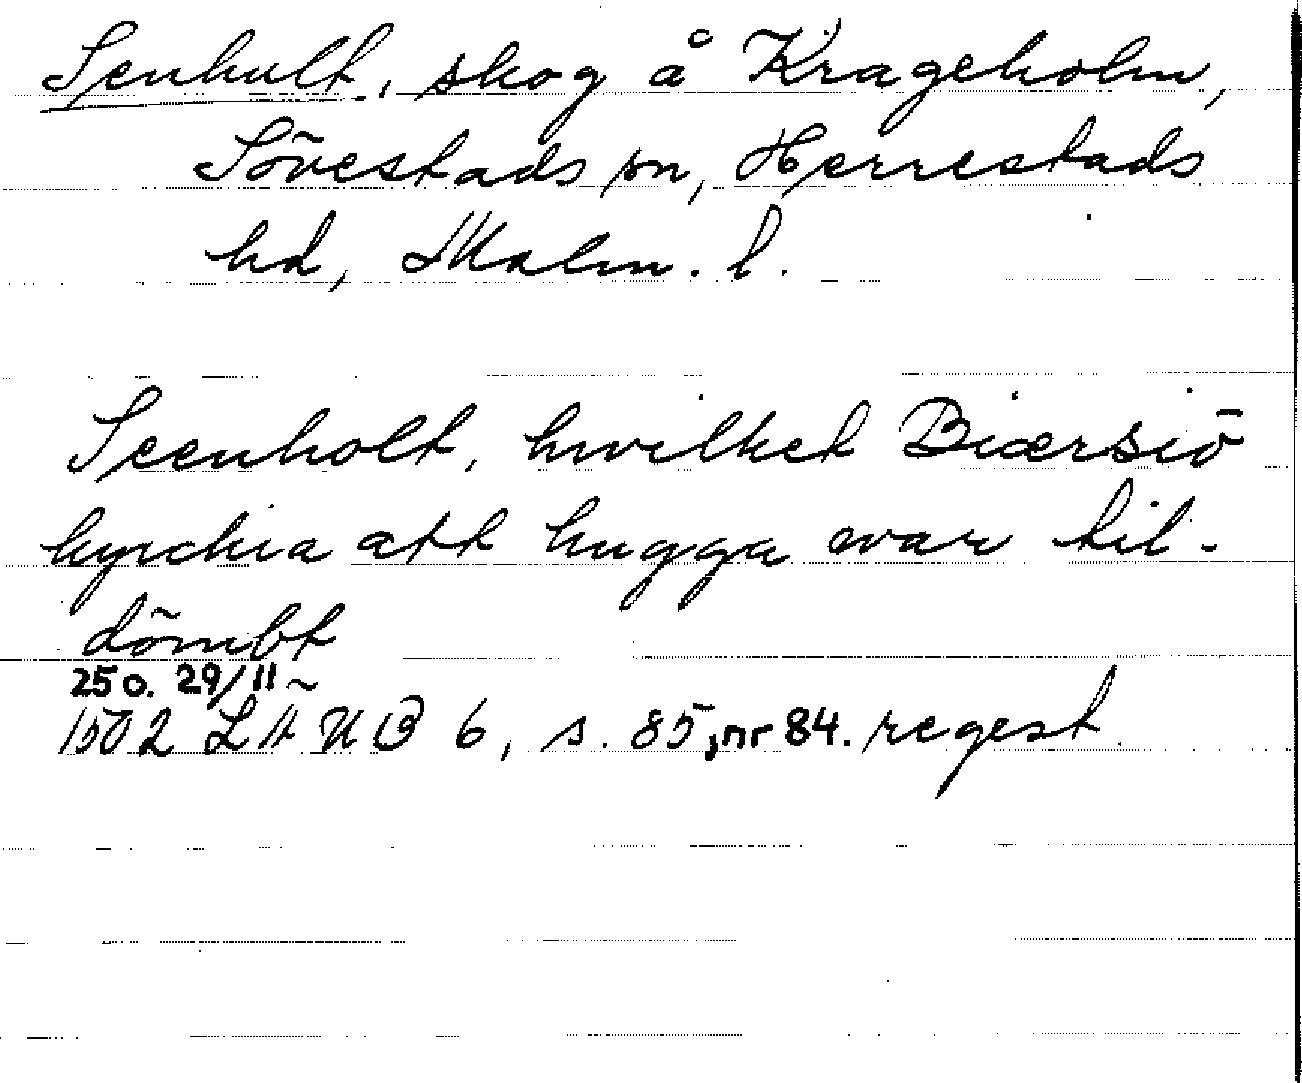 Senhult, skog å Krageholm,
Sövestads sn, Herrestads
hd, Malm. l.
Seenholt, hvilket Biærsiö
kyrckia att hugga war til-
dömbt
250. 29/11 ~
1502 LAUB 6, s. 85, nr 84. regest.